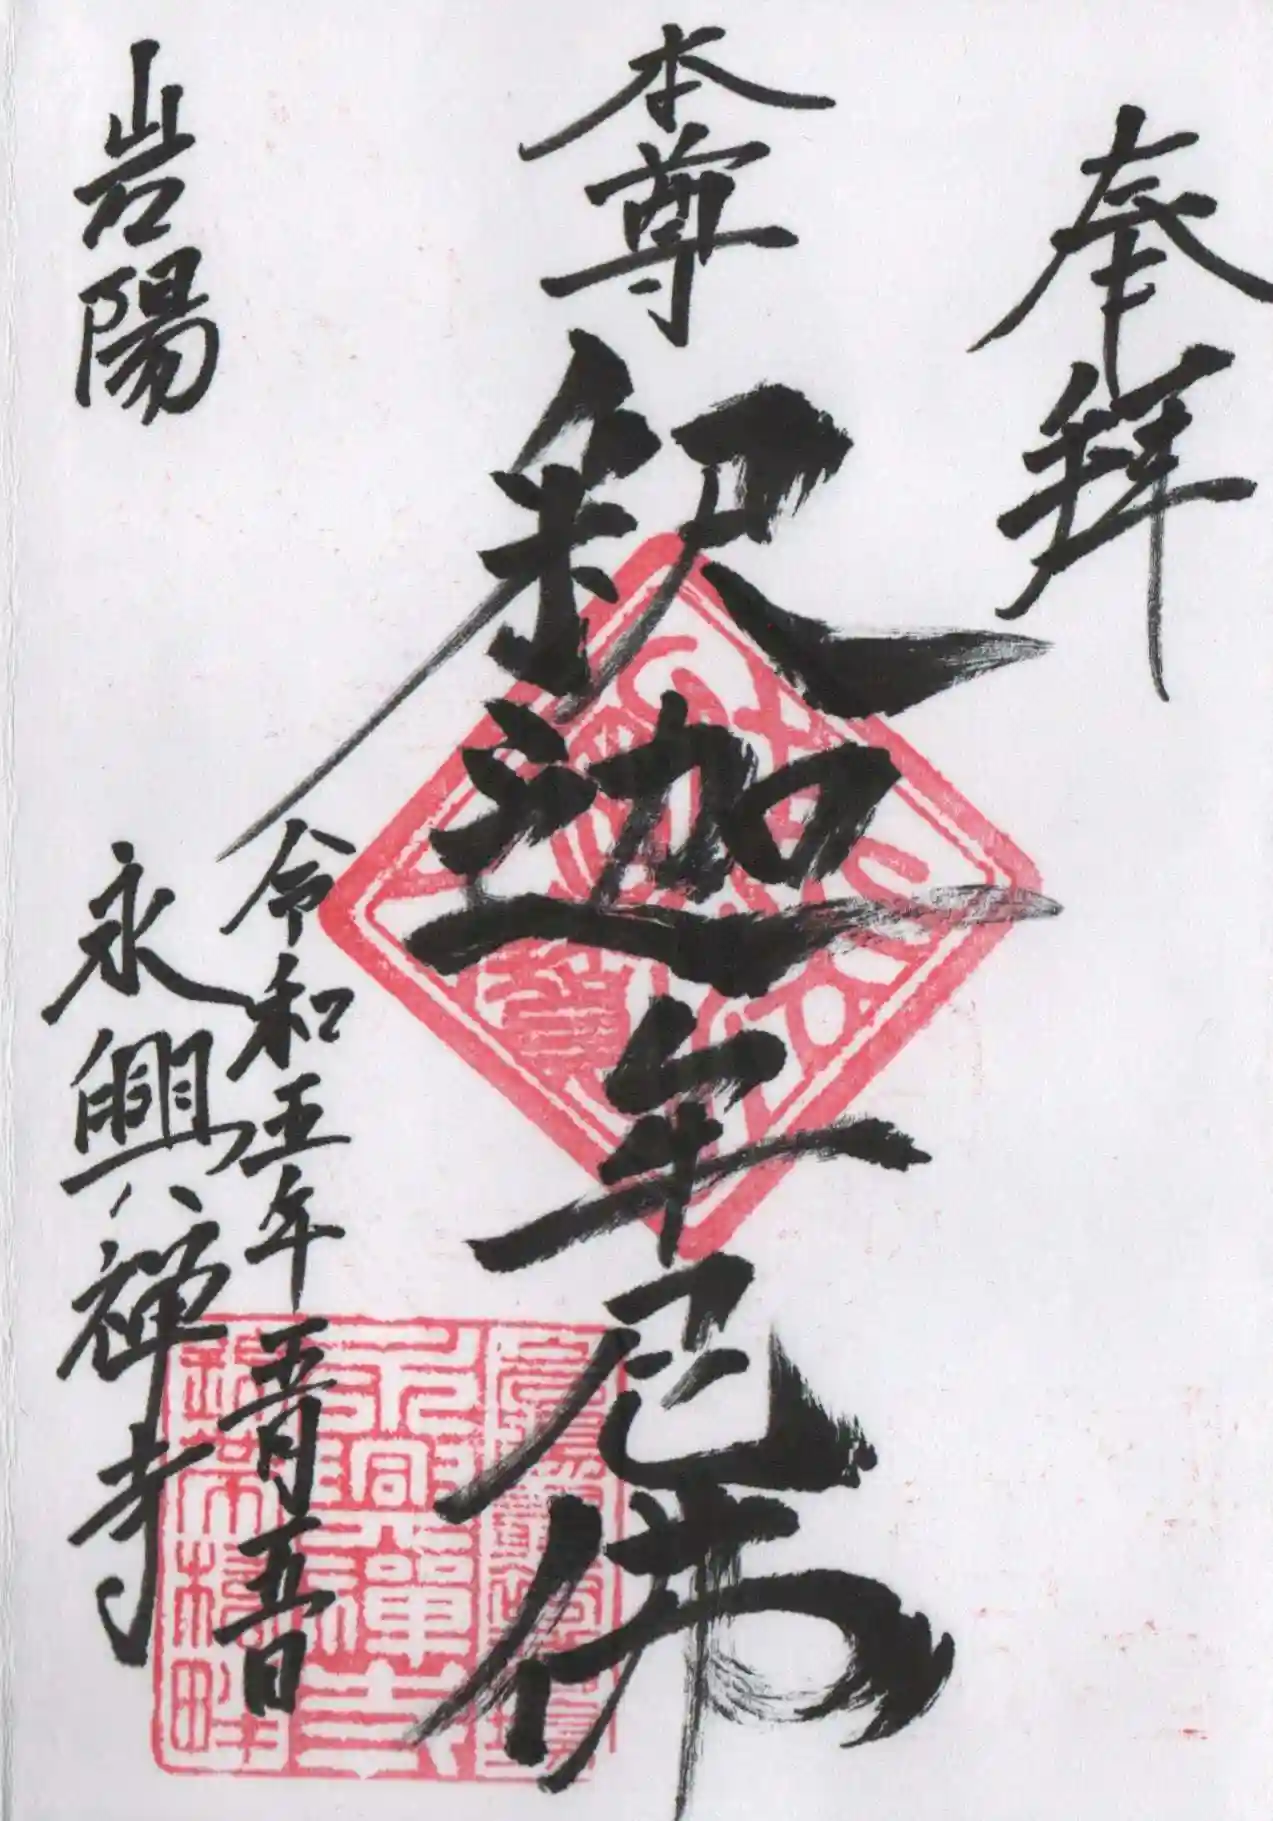 奉拜
本尊
釈迦牟尼佛
令和五年五月五日
岩陽
永興禅寺
永興禅寺